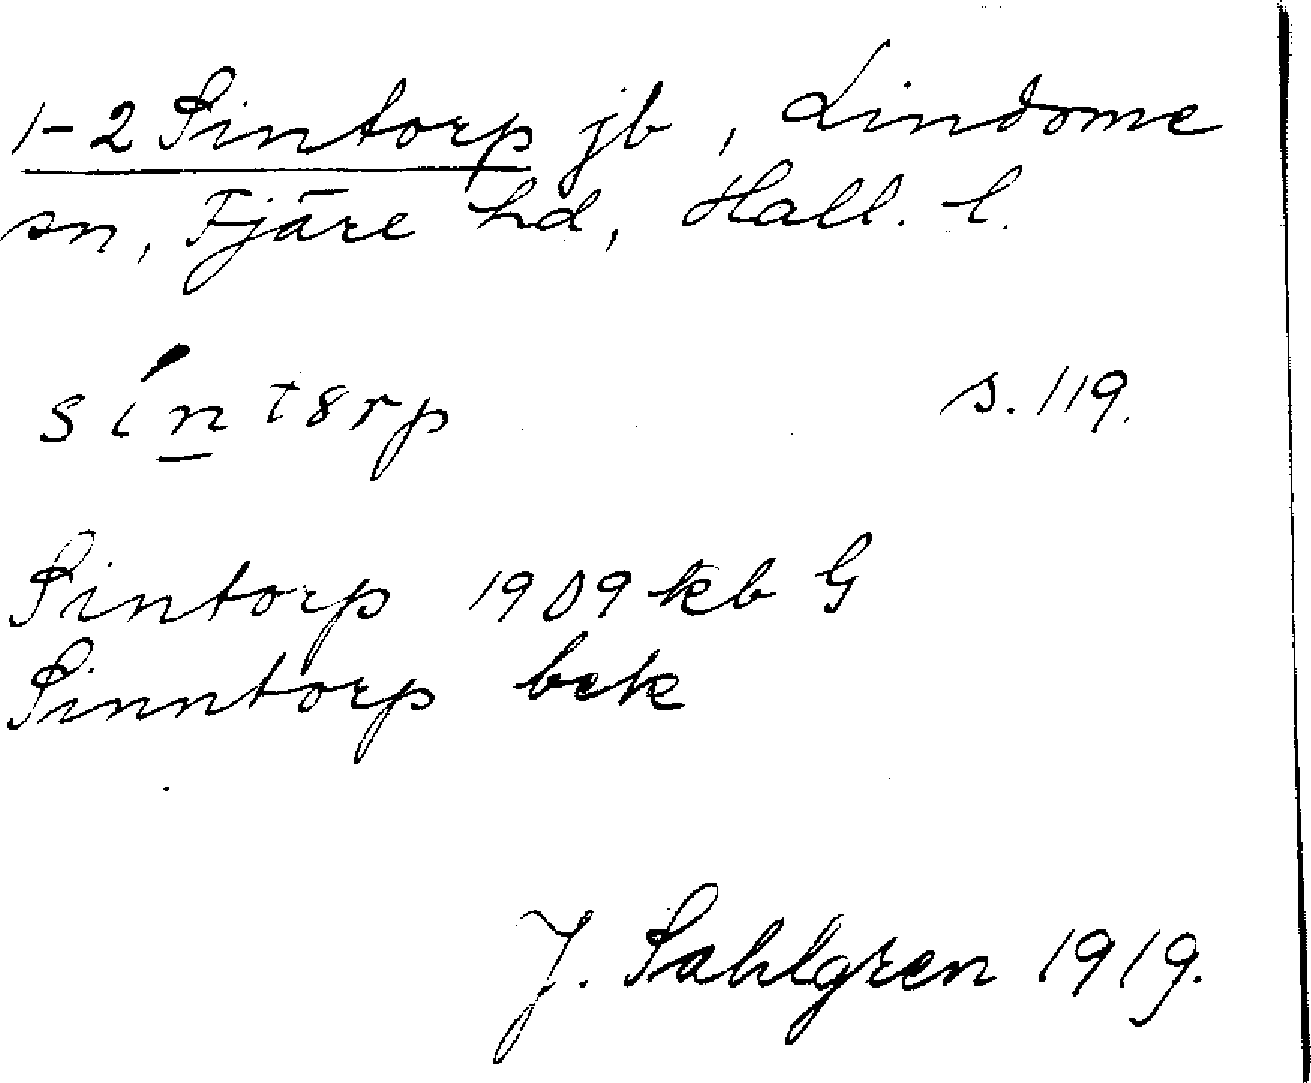 1-2 Sintorp jb, Lindome
sn, Fjäre hd, Hall. l.
síntȣrp s. 119.
Sintorp 1909 kb G
Sinntorp bek
J. Sahlgren 1919.